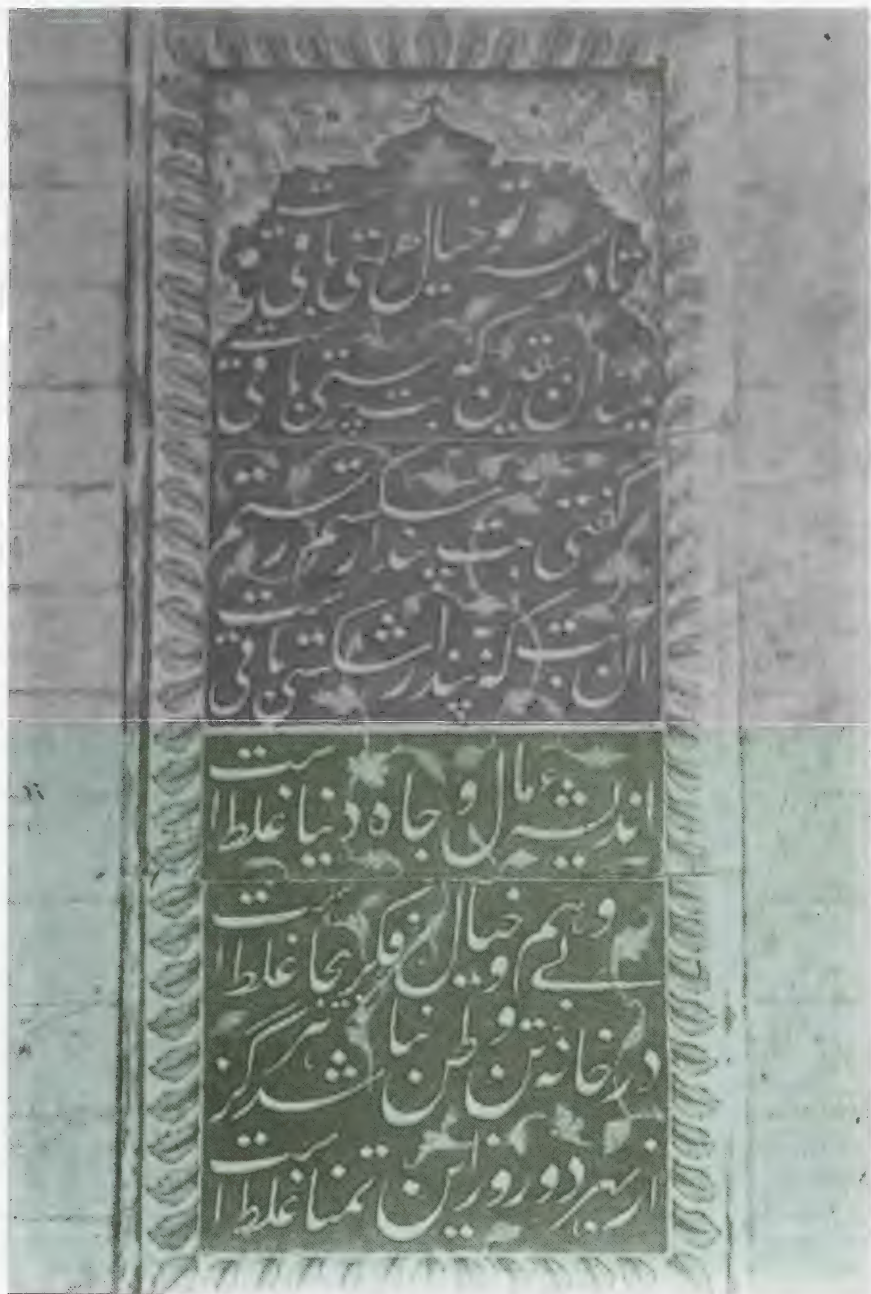 تا در سر تو خیال هستی باقیست
میدان بیقین که بت پرستی باقیست
گفتی بت پندار شکستم رستم
آن بت که ز پندار شکستی باقیست
اندیشهٔ مال و جاه دنیا غلط است
وهم و خیال و فکر بیجا غلط است
در خانه تن وطن نباشد هرگز
از بهر دو روز این تمنا غلط است